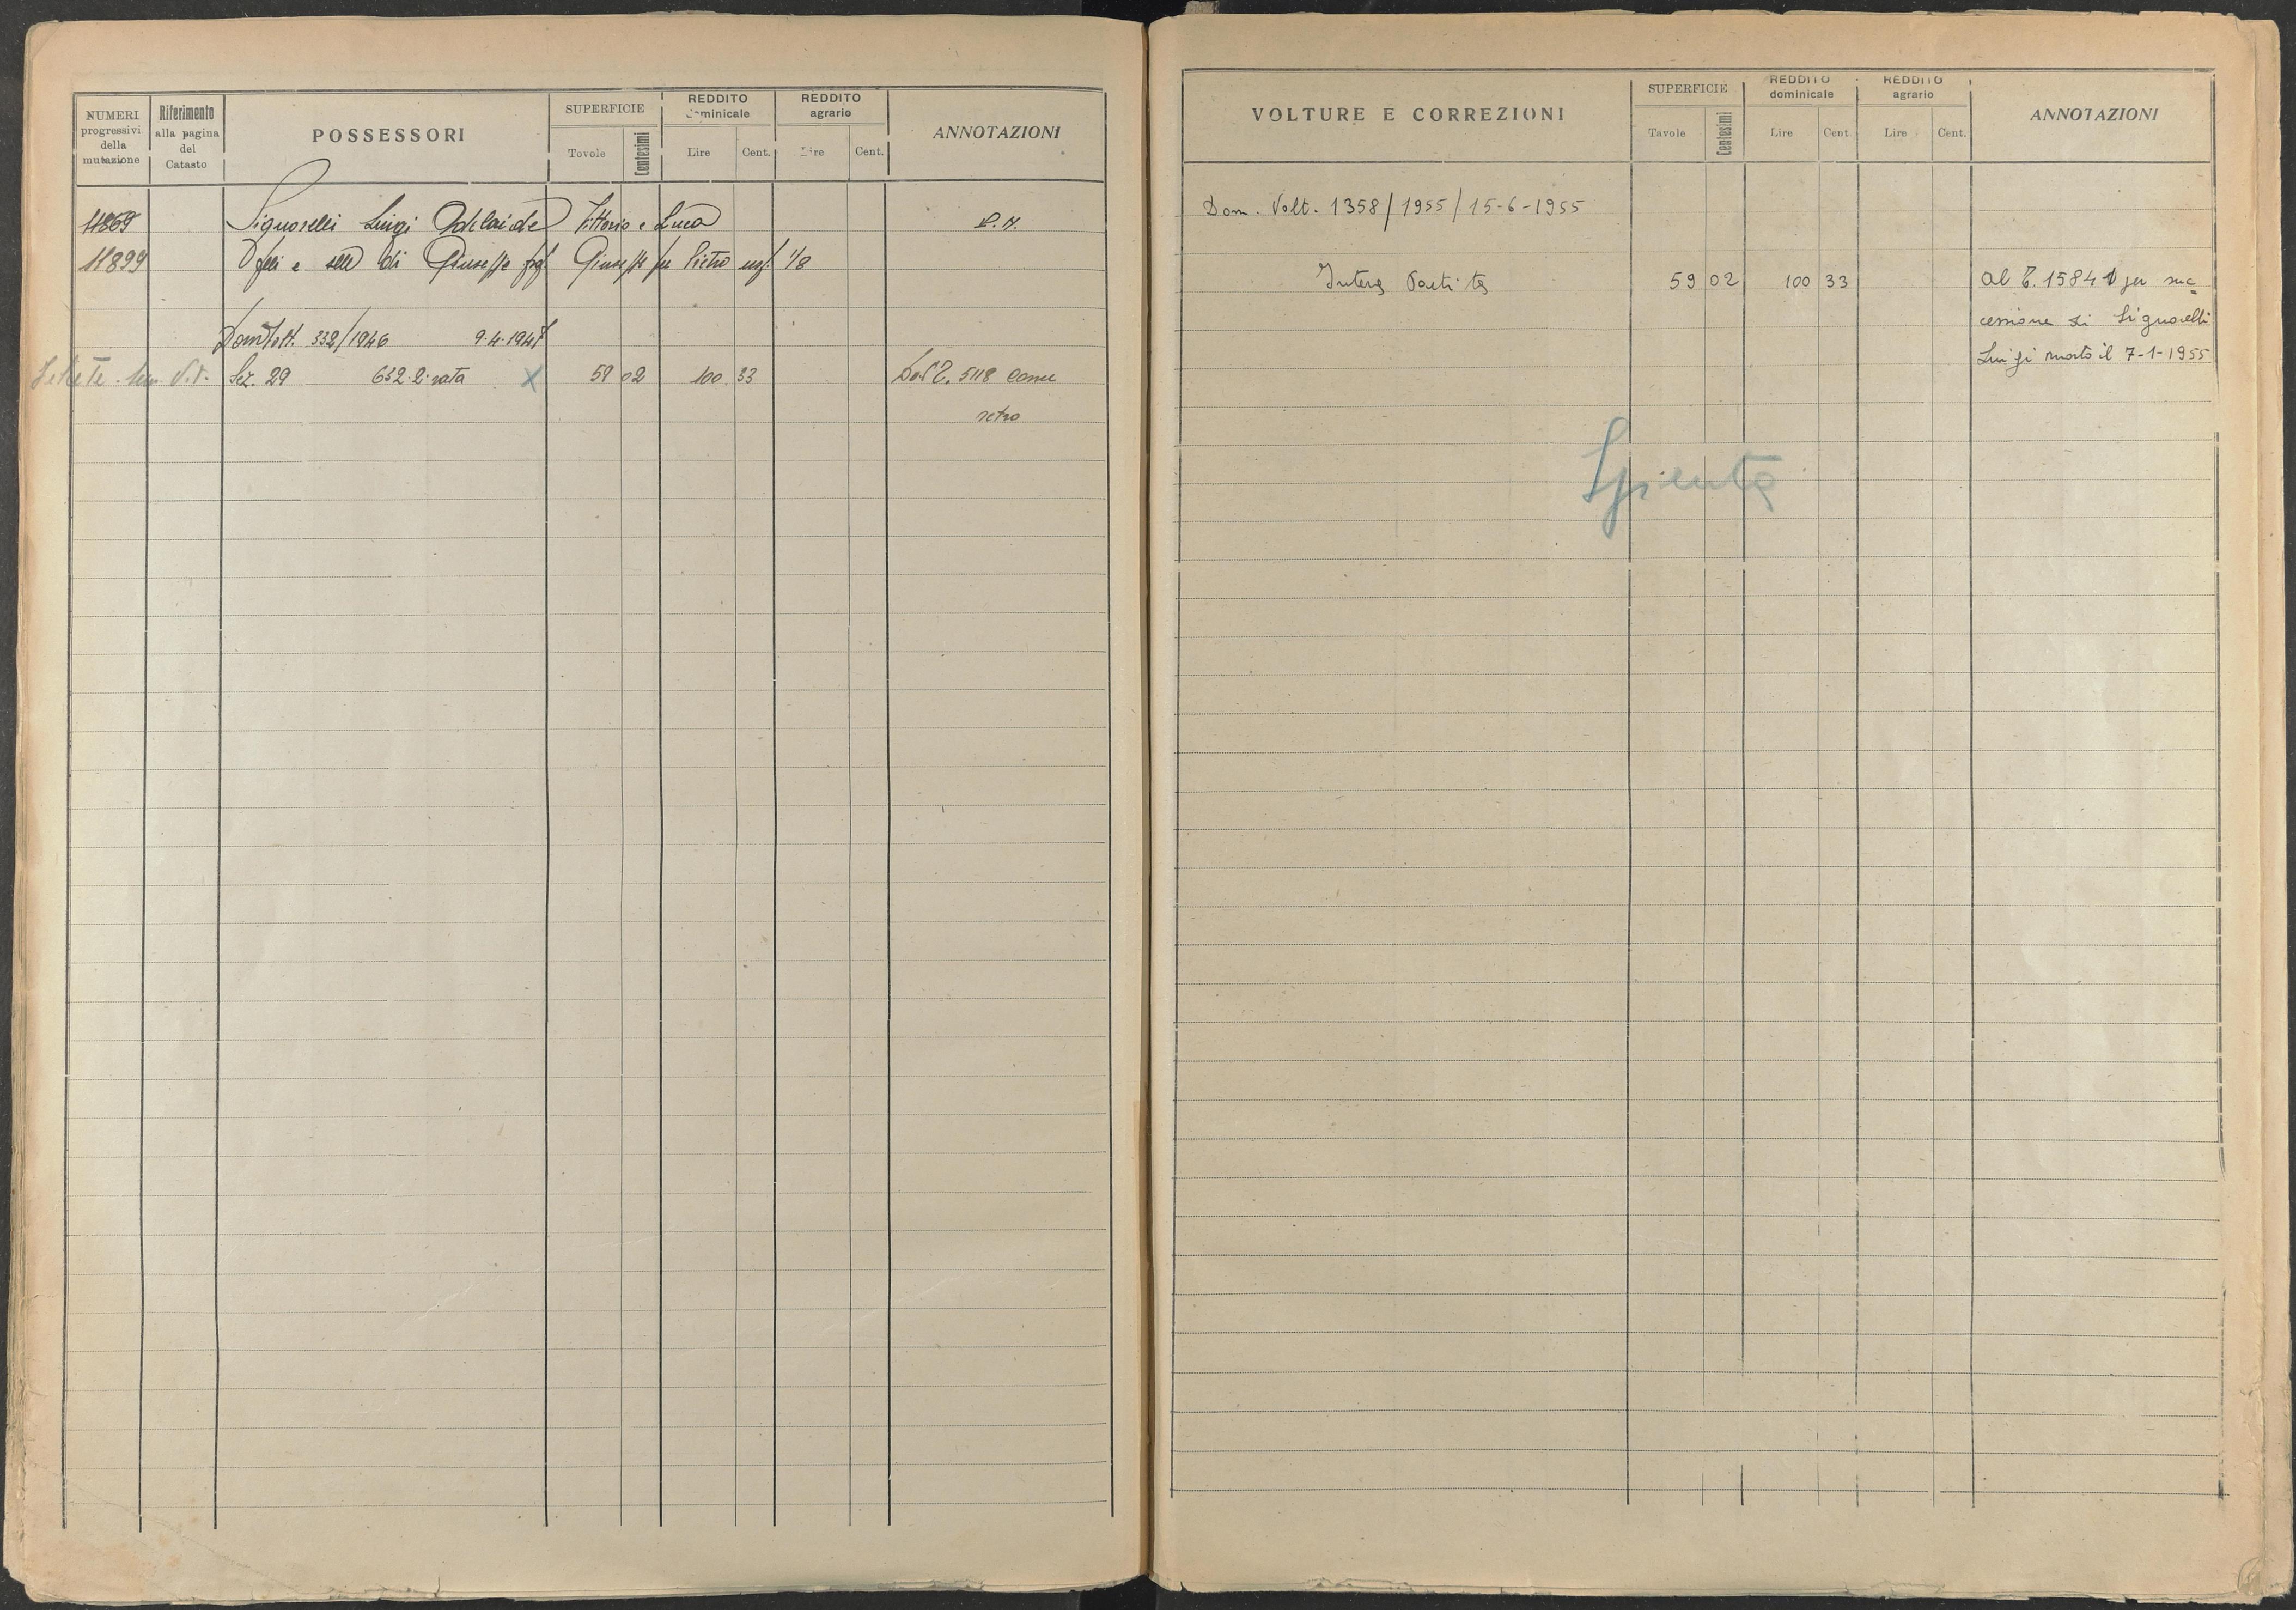 NUMERI progressivi della mutazione
Riferimento alla pagina del Catasto
POSSESSORI
SUPERFICIE
Tavole
Centesimi
REDDITO dominicale
Lire
Cent.
REDDITO agrario
Lire
Cent.
ANNOTAZIONI
11869 Signorelli Luigi Adelaide Vittorio e Luca P.N.
11899 flli e selle di Giuseppe Giuseppe fu Pietro usf. 1/8
Dom Volt. 332/1946 9.4.1947
Sez. 29 632.2 rata X 59 02 100 33 Dal T. 5118 come
retro
VOLTURE E CORREZIONI
SUPERFICIE
Tavole
Centesimi
REDDITO dominicale
Lire
Cent
REDDITO agrario
Lire
Cent.
ANNOTAZIONI
Dom. Volt. 1358/1955/15-6-1955
Intera Partita 59 02 100 33 Al T. 15841 per suc
cessione di Signorelli
Luigi morto il 7-1-1955
Spenta